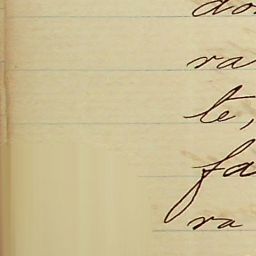 do
ra
te,
fa
ra